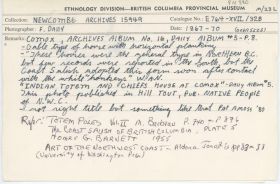 ETHNOLOGY DIVISION—BRITISH COLUMBIA PROVINCIAL MUSEUM
Collection: NEWCOMBE ARCHIVES 1544R Catalogue No. E764-XVII/32B
Photographer: F. DALLY Date: 1867-70
Remarks: COMOX, ARCHIVES ALBUM No. 16, DALLY ALBUM #5-P.8.
Gable type of house with horizontal planking
These houses were the general type in NORTHERN B.C.
but few records were reported in the South, but the
Coast Salish adopted this form soon after contact
with the white
"INDIAN TOTEM AND CHIEFS HOUSE AT COMOX" - DALLY ALBUM 5.
This photo published in HILL TOUT, PUB. NATIVE PEOPLE
OF N.W.C.
- not right title but something like that
Refs: TOTEM POLES Vol II A. Barbeau P. 740
THE COAST SALISH OF BRITISH COLUMBIA, PLATE 5
HOMER G. BARNETT 1955
ART OF THE NORTHWEST COAST -
(University of Washington Press)